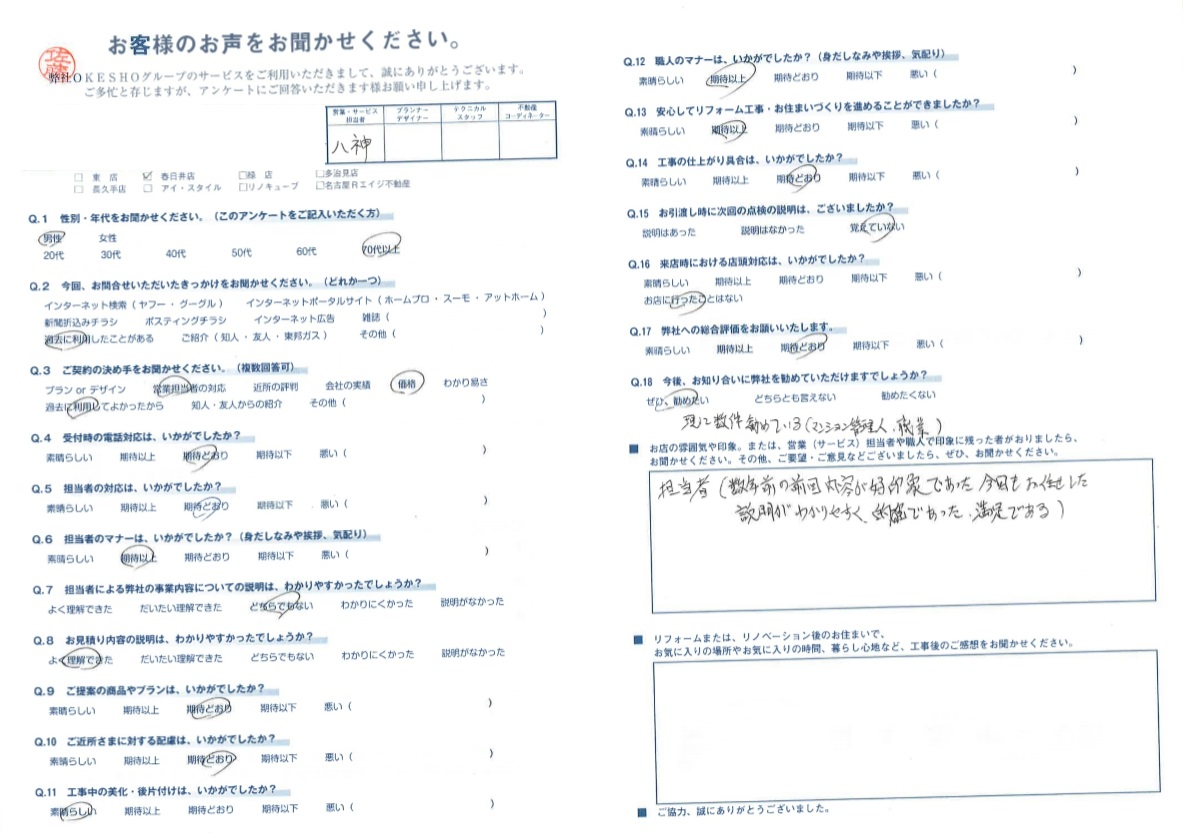 お客様のお声をお聞かせください。
佐藤
弊社OKESHOグループのサービスをご利用いただきまして、誠にありがとうございます。
ご多忙と存じますが、アンケートにご回答いただきます様お願い申し上げます。
営業・サービス担当者 プランナーデザイナー テクニカルスタッフ 不動産コーディネーター
八神
□ 東 店 ☑ 春日井店 □緑 店 □多治見店
□ 長久手店 □ アイ・スタイル □リノキューブ □名古屋Rエイジ不動産
Q.1 性別・年代をお聞かせください。(このアンケートをご記入いただく方)
男性 女性
20代 30代 40代 50代 60代 70代以上
Q.2 今回、お問合せいただいたきっかけをお聞かせください。(どれか一つ)
インターネット検索(ヤフー・グーグル) インターネットポータルサイト(ホームプロ・スーモ・アットホーム)
新聞折込みチラシ ポスティングチラシ インターネット広告 雑誌( )
過去に利用したことがある ご紹介(知人・友人・東邦ガス) その他( )
Q.3 ご契約の決め手をお聞かせください。(複数回答可)
プラン or デザイン 営業担当者の対応 近所の評判 会社の実績 価格 わかり易さ
過去に利用してよかったから 知人・友人からの紹介 その他( )
Q.4 受付時の電話対応は、いかがでしたか?
素晴らしい 期待以上 期待どおり 期待以下 悪い( )
Q.5 担当者の対応は、いかがでしたか?
素晴らしい 期待以上 期待どおり 期待以下 悪い( )
Q.6 担当者のマナーは、いかがでしたか?(身だしなみや挨拶、気配り)
素晴らしい 期待以上 期待どおり 期待以下 悪い( )
Q.7 担当者による弊社の事業内容についての説明は、わかりやすかったでしょうか?
よく理解できた だいたい理解できた どちらでもない わかりにくかった 説明がなかった
Q.8 お見積り内容の説明は、わかりやすかったでしょうか?
よく理解できた だいたい理解できた どちらでもない わかりにくかった 説明がなかった
Q.9 ご提案の商品やプランは、いかがでしたか?
素晴らしい 期待以上 期待どおり 期待以下 悪い( )
Q.10 ご近所さまに対する配慮は、いかがでしたか?
素晴らしい 期待以上 期待どおり 期待以下 悪い( )
Q.11 工事中の美化・後片付けは、いかがでしたか?
素晴らしい 期待以上 期待どおり 期待以下 悪い( )
Q.12 職人のマナーは、いかがでしたか?(身だしなみや挨拶、気配り)
素晴らしい 期待以上 期待どおり 期待以下 悪い( )
Q.13 安心してリフォーム工事・お住まいづくりを進めることができましたか?
素晴らしい 期待以上 期待どおり 期待以下 悪い( )
Q.14 工事の仕上がり具合は、いかがでしたか?
素晴らしい 期待以上 期待どおり 期待以下 悪い( )
Q.15 お引渡し時に次回の点検の説明は、ございましたか?
説明はあった 説明はなかった 覚えていない
Q.16 来店時における店頭対応は、いかがでしたか?
素晴らしい 期待以上 期待どおり 期待以下 悪い( )
お店に行ったことはない
Q.17 弊社への総合評価をお願いいたします。
素晴らしい 期待以上 期待どおり 期待以下 悪い( )
Q.18 今後、お知り合いに弊社を勧めていただけますでしょうか?
ぜひ、勧めたい どちらとも言えない 勧めたくない
現に数件勧めている(マンション管理人、職業)
■ お店の雰囲気や印象。または、営業(サービス)担当者や職人で印象に残った者がおりましたら、
お聞かせください。その他、ご要望・ご意見などございましたら、ぜひ、お聞かせください。
担当者(数年前の前回内容が好印象であった 今回もお任せした
説明がわかりやすく、的確であった、満足である)
■ リフォームまたは、リノベーション後のお住まいで、
お気に入りの場所やお気に入りの時間、暮らし心地など、工事後のご感想をお聞かせください。
■ ご協力、誠にありがとうございました。